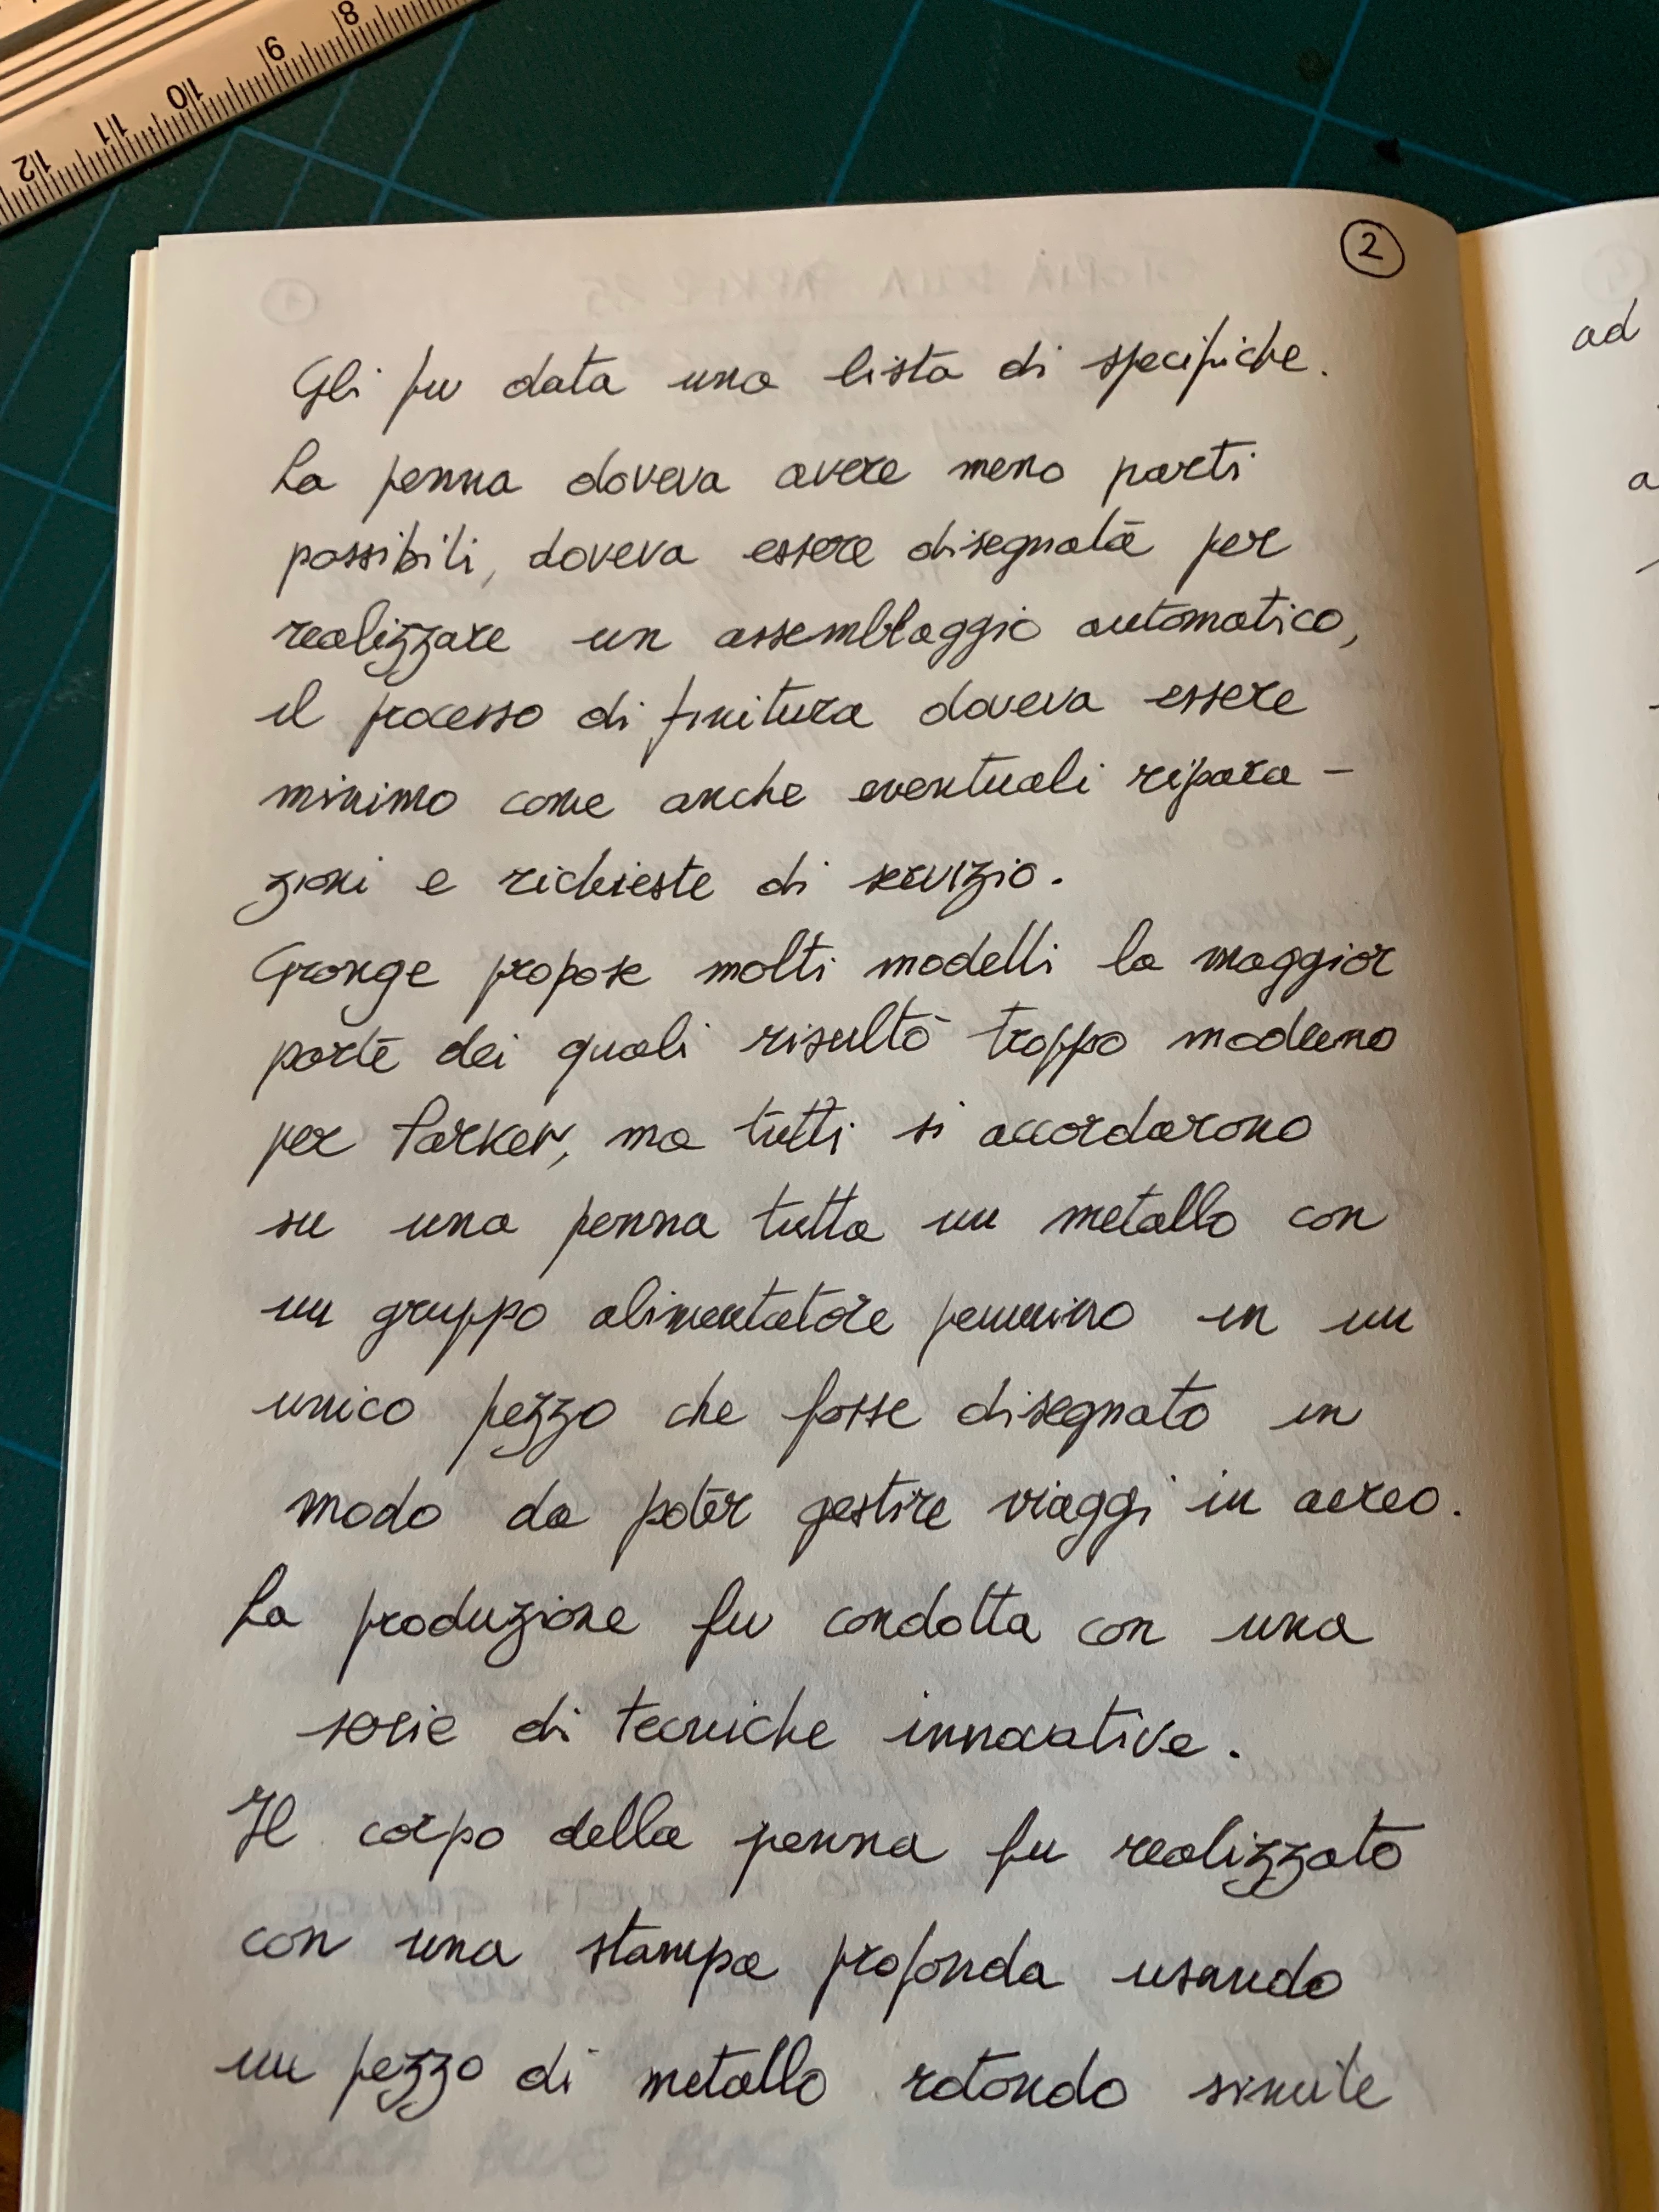 2
Gli fu data una lista di specifiche.
La penna doveva avere meno parti
possibili, doveva essere disegnata per
realizzare un assemblaggio automatico,
il processo di finitura doveva essere
minimo come anche eventuali ripara-
zioni e richieste di servizio.
Grange propose molti modelli la maggior
parte dei quali risultò troppo moderno
per Parker, ma tutti si accordarono
su una penna tutta in metallo con
un gruppo alimentatore pennino in un
unico pezzo che fosse disegnato in
modo da poter gestire viaggi in aereo.
La produzione fu condotta con una
serie di tecniche innovative.
Il corpo della penna fu realizzato
con una stampa profonda usando
un pezzo di metallo rotondo simile
ad
a
8
9
10
11
12